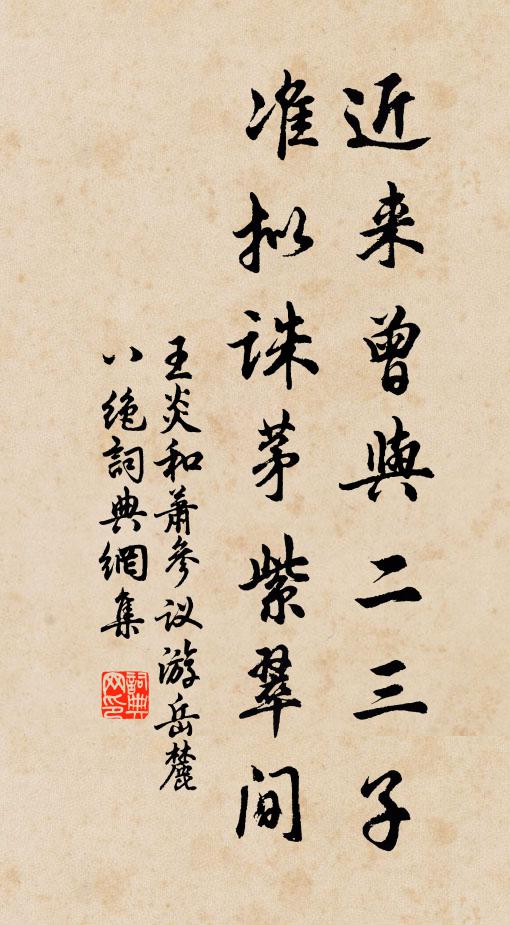 近来曾與二三子
准拟誅茅紫翠间
王炎和萧参议游岳麓
八绝詞典網集
詞典
网印